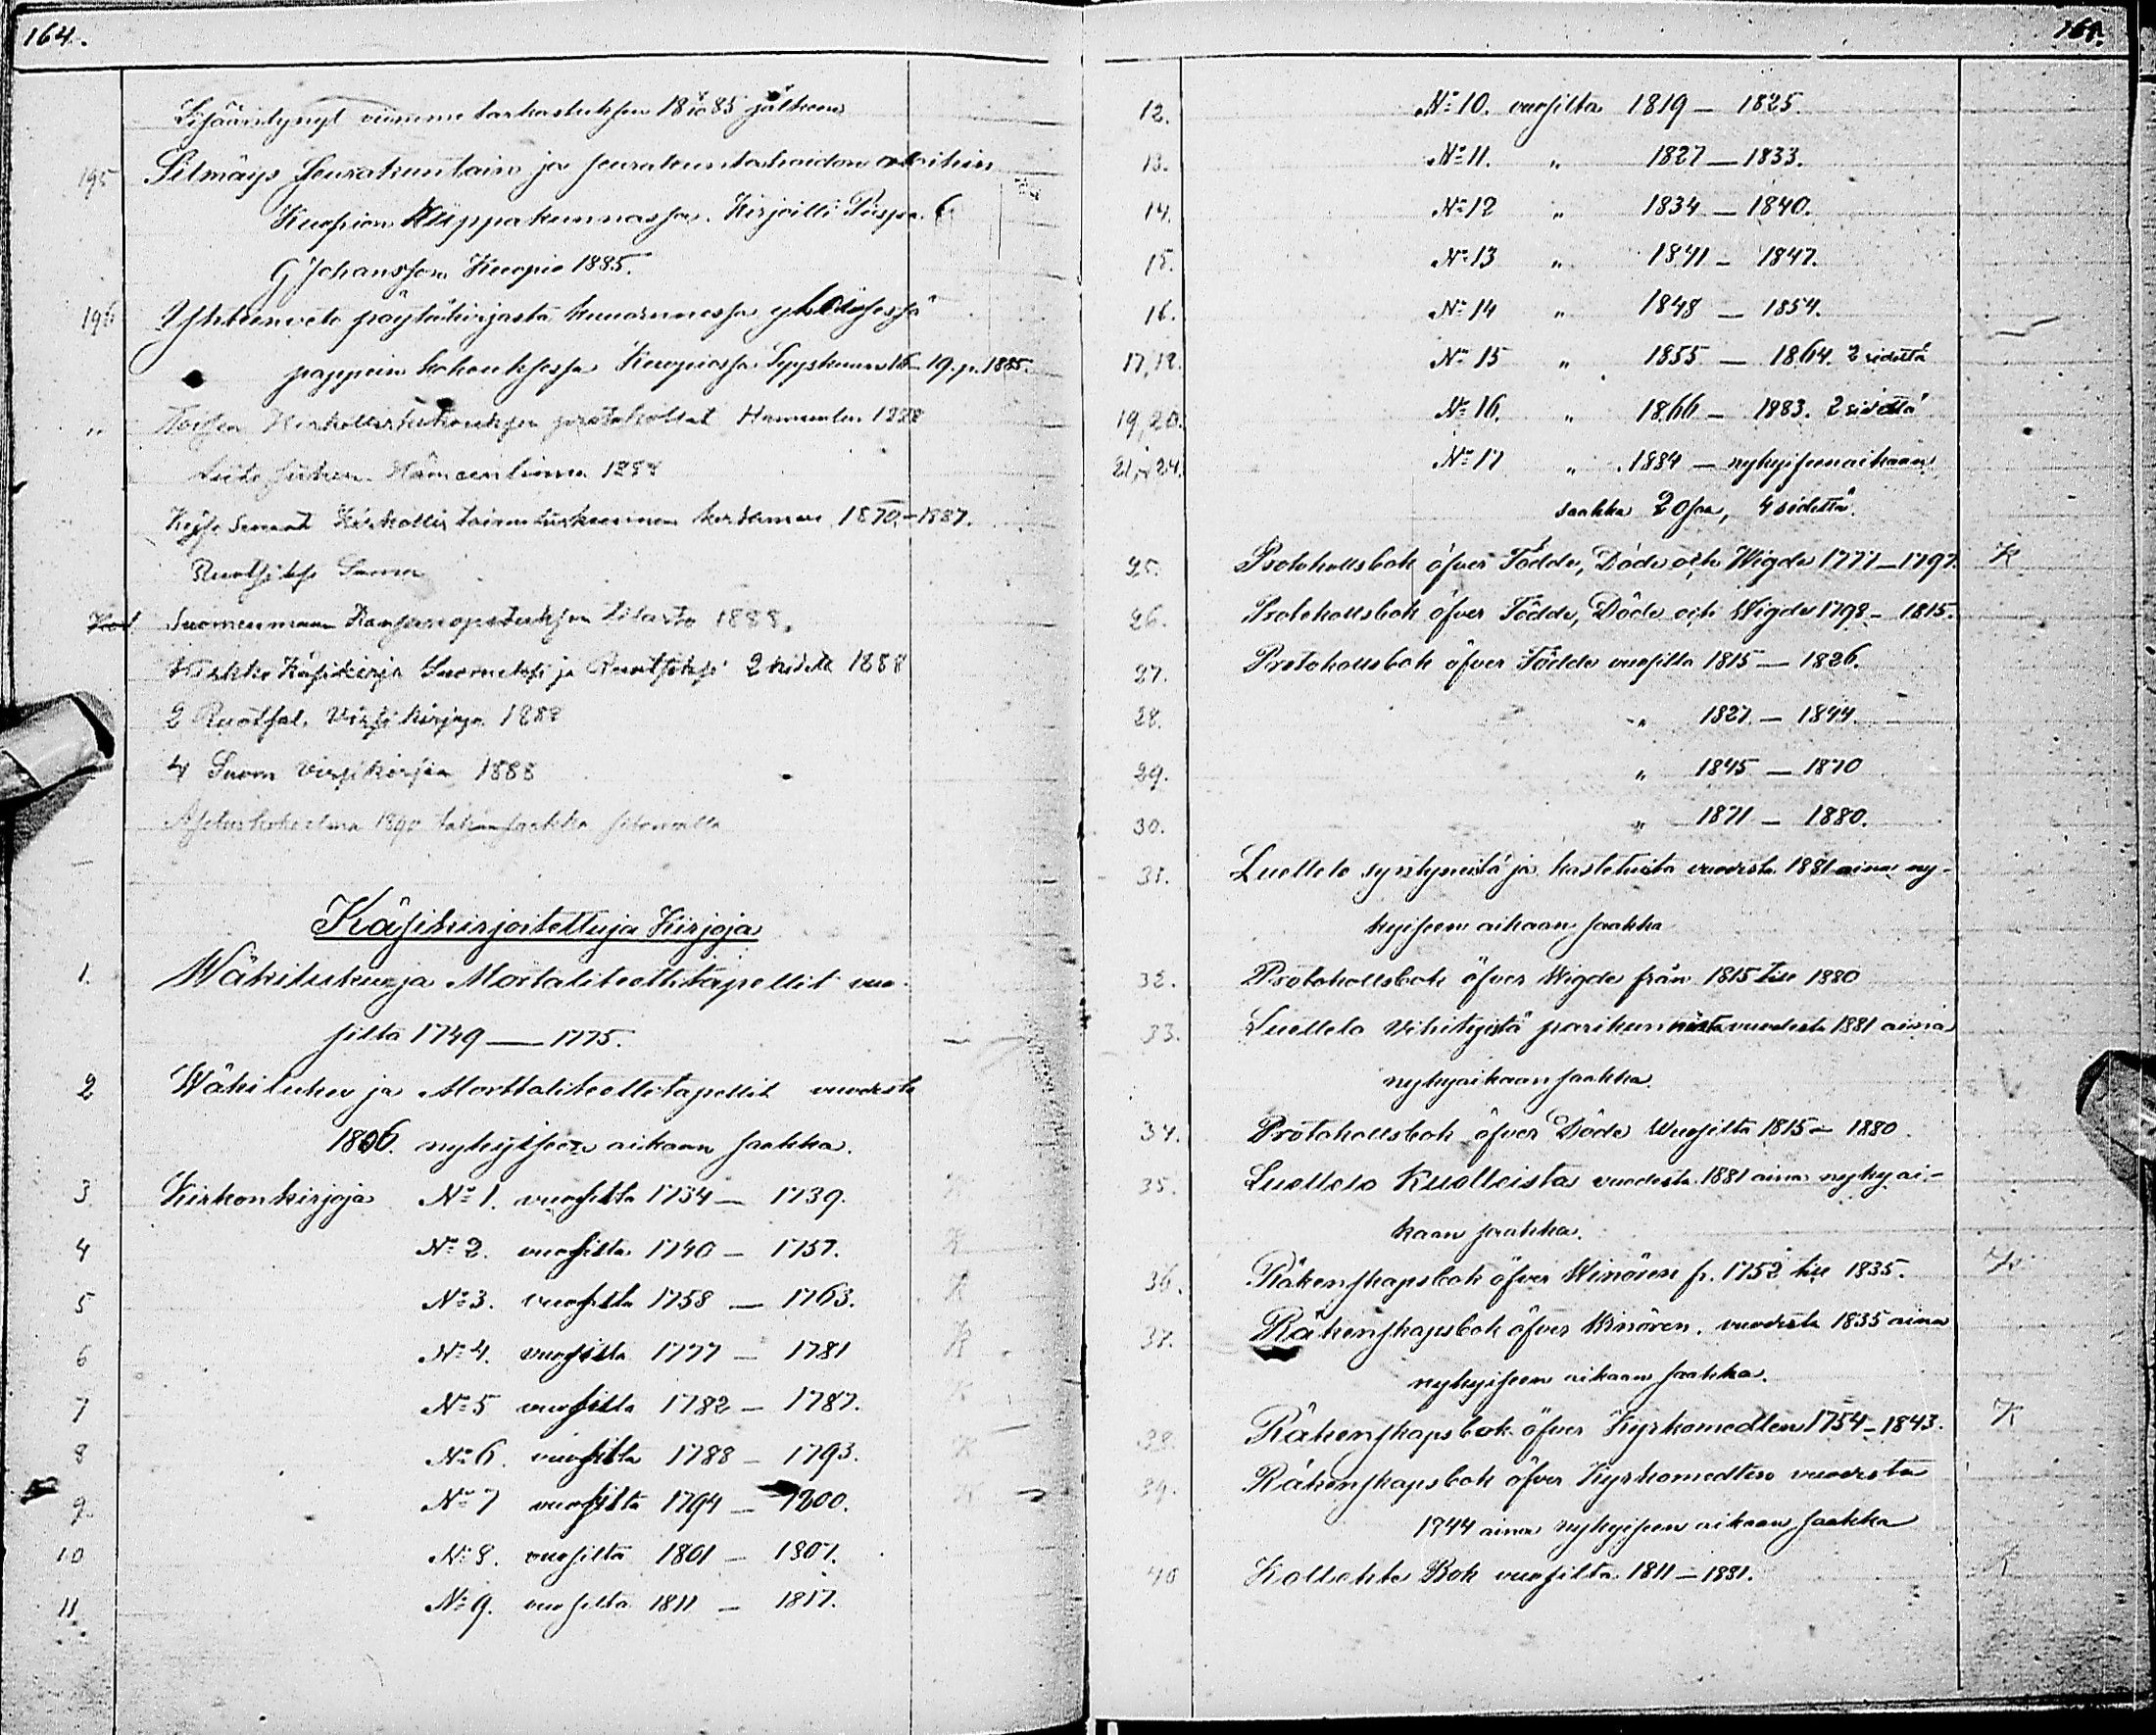 164.
Lisääntynyt viimme tarkastuksen 18 8/10 85 jälkeen
195 Silmäys Seurakuntain ja seurakuntahoidon oloihin
Kuopion Hiippakunnassa. Kirjoitti Piispa
G Johansson Kuopio 1885.
196 Yhteenveto pöytäkirjasta kuudennessa yhteisessä
pappein kokouksessa Kuopiossa Syyskuun 16–19. p. 1885.
" Toisen Kirkolliskokouksen protokollat
Hämeenlinna
Senaat Kirkollis toimituskunnan kertomus 1870–1887.
Ruotsiksi
Suomenmaan Kansanopetuksen tilasto 1888.
Kirkko Käsikirja Suomeksi ja Ruotsiksi 2 sidettä 1888
2 Ruotsal. Virsikirjaa 1888
4 Suom Virsikirjaa 1888
Asetuskokoelma 1890 saakka
Käsikirjoitettuja Kirjoja
1. Wäkiluku ja Mortaliteettitapellit vuo-
silta 1749 — 1775.
2 Wäkiluku ja Morttaliteettitapellit vuodesta
1806. nykyiseen aikaan saakka.
3. Kirkonkirjoja No 1. vuosilta 1734 — 1739. K
4 No 2. vuosilta 1740 — 1757. K
5 No 3. vuosilta 1758 — 1763. K
6 No 4. vuosilta 1777 — 1781 K
7 No 5 vuosilta 1782 — 1787. K
8 No 6. vuosilta 1788 — 1793. K
9. No 7 vuosilta 1794 — 1800. K
10 No 8. vuosilta 1801 — 1807.
11 No 9. vuosilta 1811 — 1817.
165.
12. No 10. vuosilta 1819 — 1825.
13. No 11. " 1827 — 1833.
14. No 12 " 1834 — 1840.
15. No 13 " 1841 — 1847.
16. No 14 " 1848 — 1854.
17, 18. No 15 " 1855 — 1864. 2 sidettä
19, 20. No 16. " 1866 — 1883. 2 sidettä
21, 24. No 17 " 1884 — nykyiseen aikaan
saakka 2 osaa, 4 sidettä.
25. Protokollsbok öfver Födde, Döde och Wigde 1777 — 1797. K
26. Protokollsbok öfver Födde, Döde och Wigde 1798 — 1815.
27. Protokollsbok öfver Födde vuosilta 1815 — 1826.
28. " 1827 — 1844.
29. " 1845 — 1870
30. " 1871 — 1880.
31. Luettelo syntyneistä ja kastetuista vuodesta 1881 aina ny-
kyiseen aikaan saakka
32. Protokollsbok öfver Wigde från 1815 till 1880
33. Luettelo Vihityistä parikunnista vuodesta 1881 aina
nykyaikaan saakka.
34. Protokollsbok öfver Döde Wuosilta 1815 — 1880.
35. Luettelo Kuolleista vuodesta 1881 aina nykyai-
kaan saakka.
36. Räkenskapsbok öfver Winören fr. 1752 till 1835. K
37. Räkenskapsbok öfver Winören. vuodesta 1835 aina
nykyiseen aikaan saakka.
38. Räkenskapsbok öfver Kyrkomedlen 1754 — 1843. K
39. Räkenskapsbok öfver Kyrkomedlen vuodesta
1844 aina nykyiseen aikaan saakka
40 Kollekte Bok vuosilta 1811 — 1881. K